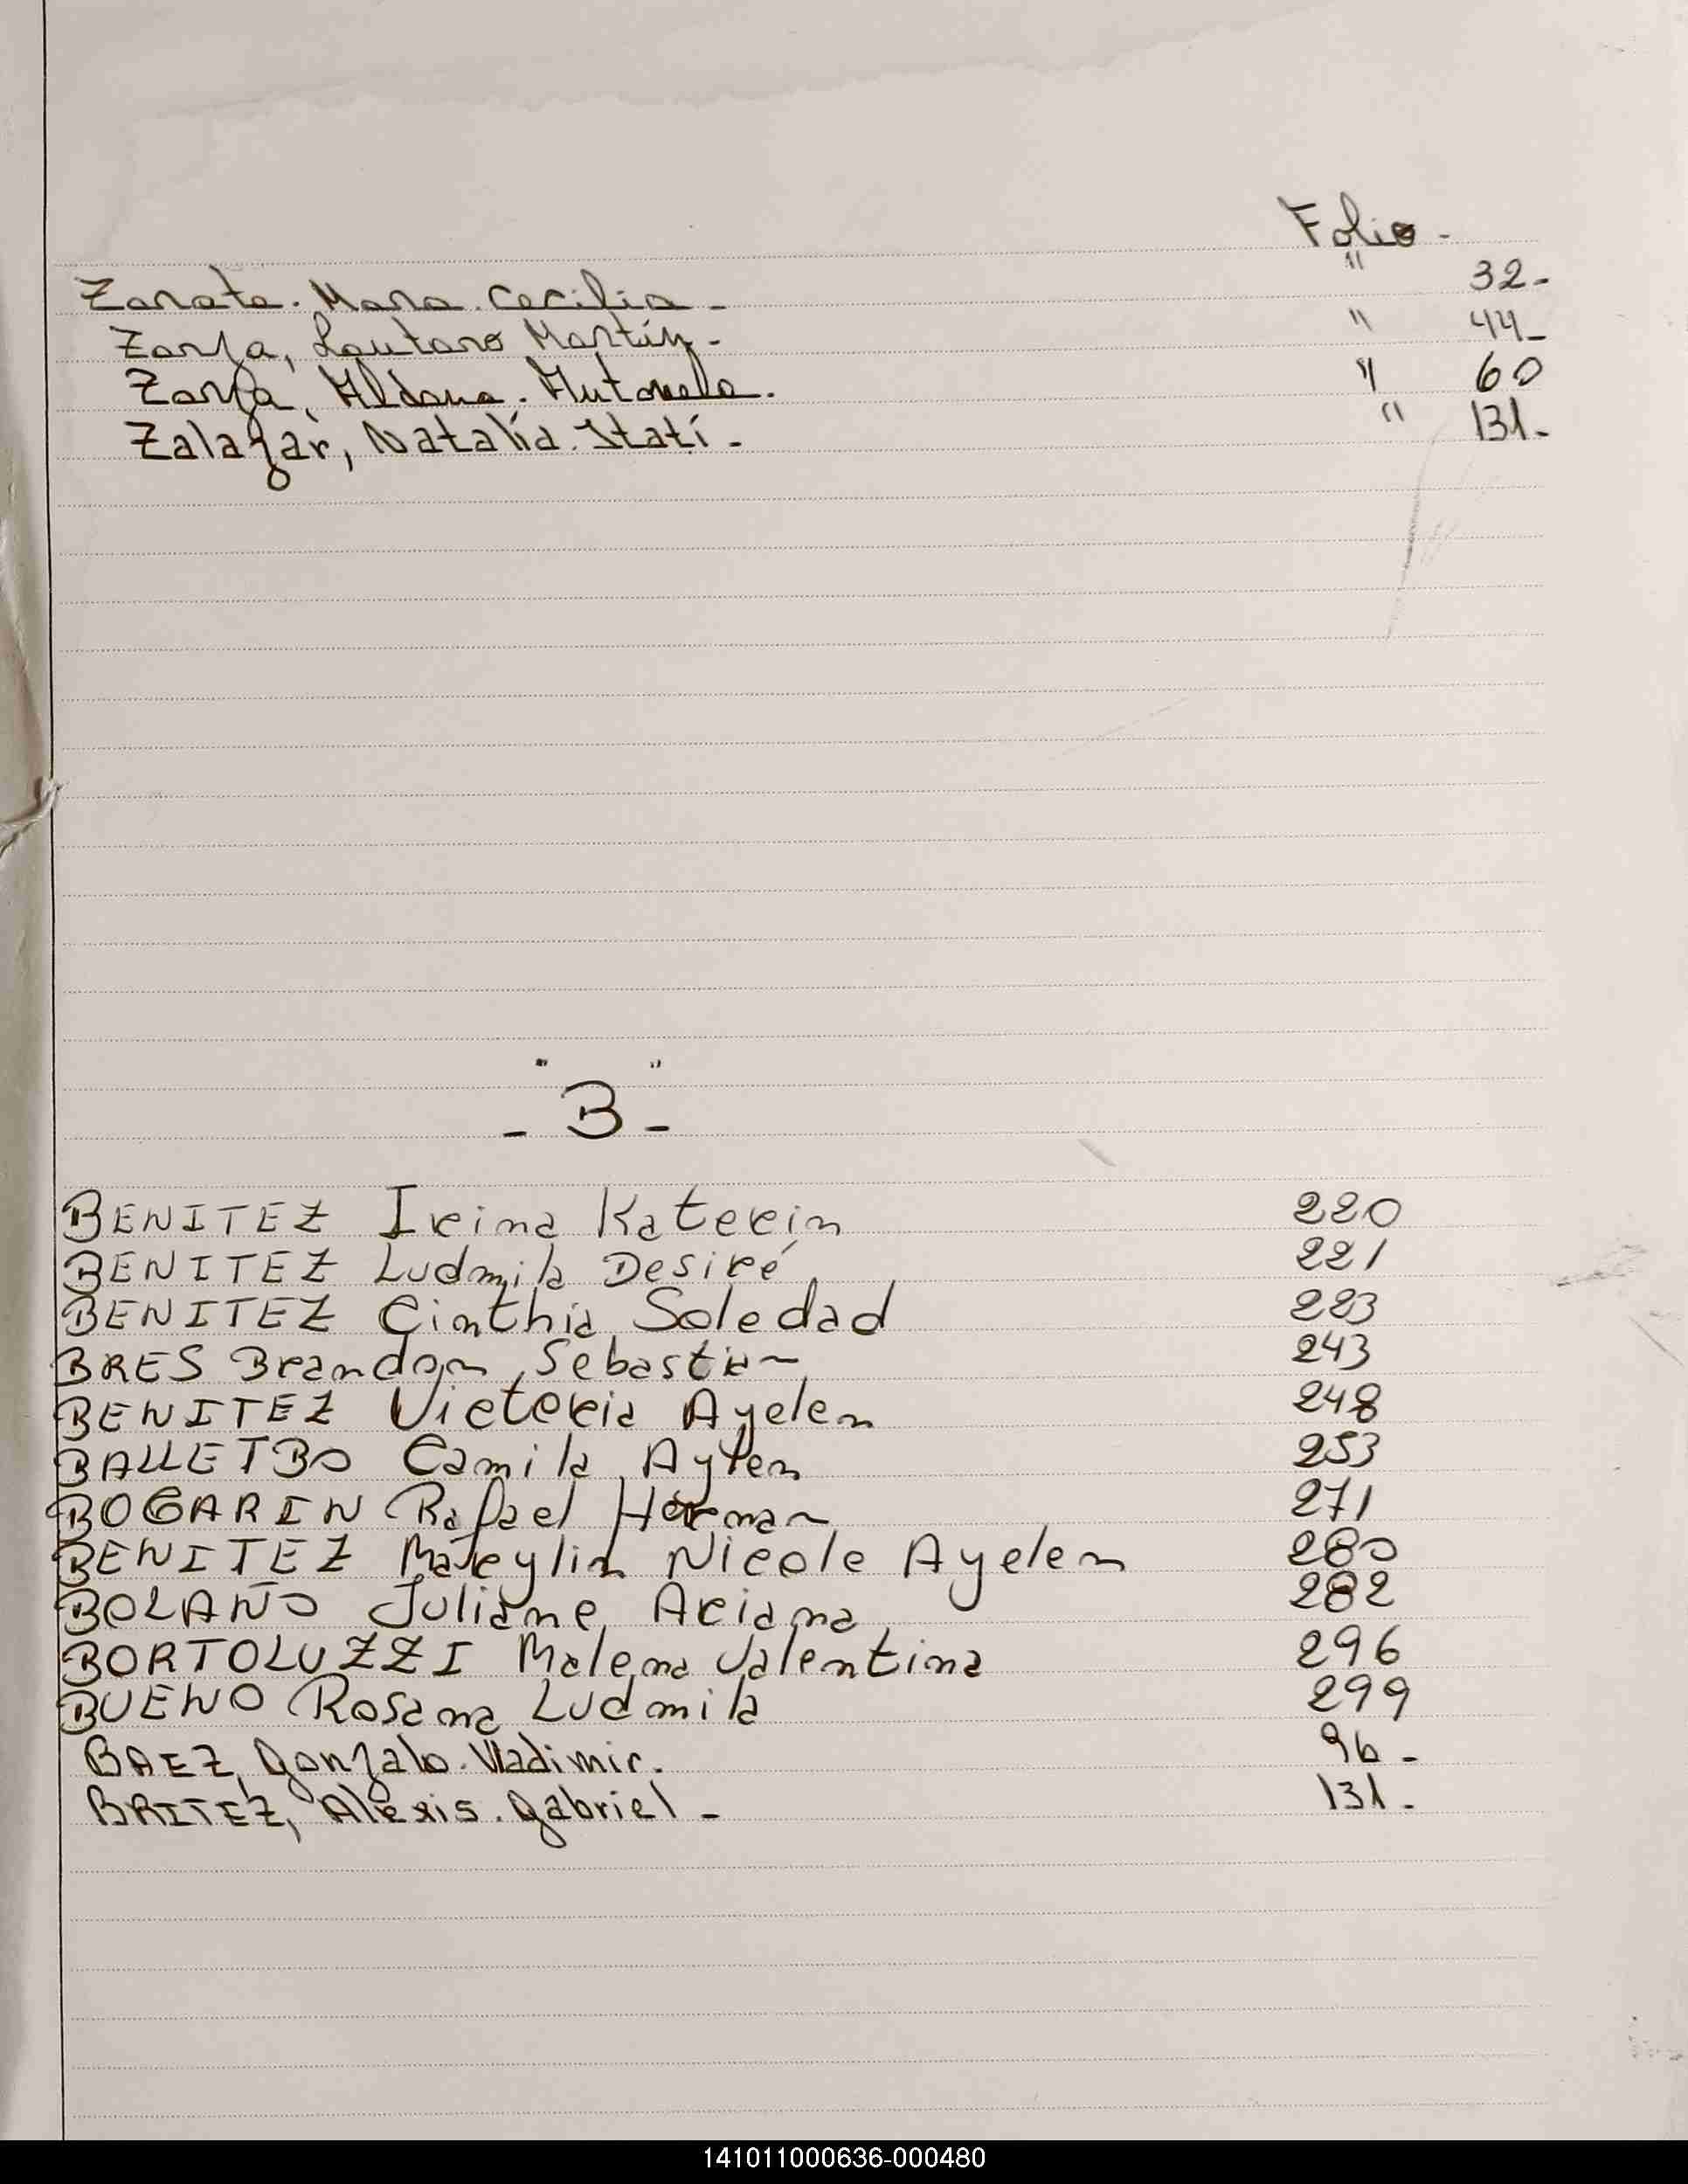 Folio -
Zarate. Mara. Cecilia - " 32-
Zarza, Lautaro Martín - " 44-
Zarza, Aldana. Antonela. " 60
Zalazar, Natalia. Itatí - " 131-
"
- B -
BENITEZ Irina Katerin 220
BENITEZ Ludmila Desiré 221
BENITEZ Cinthia Soledad 223
BRES Brandon Sebastian 243
BENITEZ Victoria Ayelen 248
BALLETBO Camila Aylen 253
BOGARIN Rafael Hernan 271
BENITEZ Nicole Ayelen 280
BOLAÑO Juliane Ariana 282
BORTOLUZZI Malena Valentina 296
BUENO Rosana Ludmila 299
BAEZ, Gonzalo. Vladimir. 96 -
BRITEZ, Alexis. Gabriel - 131 -
141011000636-000480